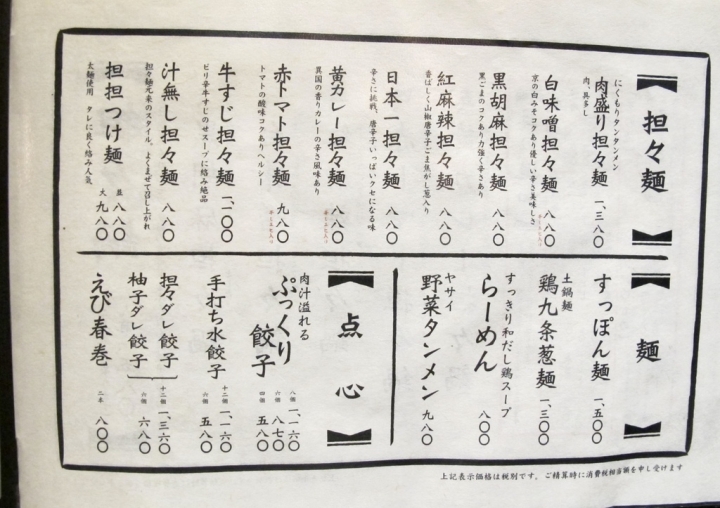 担々麺
にくもりタンタンメン
肉盛り担々麺 一、三八〇
肉、具多し
白味噌担々麺 八八〇
京の白みそコクあり優しい辛さ美味しさ
黒胡麻担々麺 八八〇
黒ごまのコクあり力強く辛さあり
紅麻辣担々麺 八八〇
香ばしく山椒唐辛子ごま焦がし葱入り
日本一担々麺 八八〇
辛さに挑戦、唐辛子いっぱいクセになる味
黄カレー担々麺 八八〇
異国の香りカレーの辛さ風味あり
赤トマト担々麺 九八〇
トマトの酸味コクありヘルシー
牛すじ担々麺 一、一〇〇
ピリ辛牛すじのせスープに絡み絶品
汁無し担々麺 八八〇
担々麺元来のスタイル。よくまぜて召し上がれ
担担つけ麺 並 八八〇
大 九八〇
太麺使用 タレに良く絡み人気
麺
すっぽん麺 一、五〇〇
土鍋麺
鶏九条葱麺 一、三〇〇
すっきり和だし鶏スープ
らーめん 八〇〇
ヤサイ
野菜タンメン 九八〇
点心
肉汁溢れる
ぷっくり餃子 八個 一、一六〇
六個 八七〇
四個 五八〇
手打ち水餃子 十二個 一、一六〇
六個 五八〇
担々ダレ餃子
柚子ダレ餃子
十二個 一、三六〇
六個 六八〇
えび春巻 二本 八〇〇
上記表示価格は税別です。ご精算時に消費税相当額を申し受けます